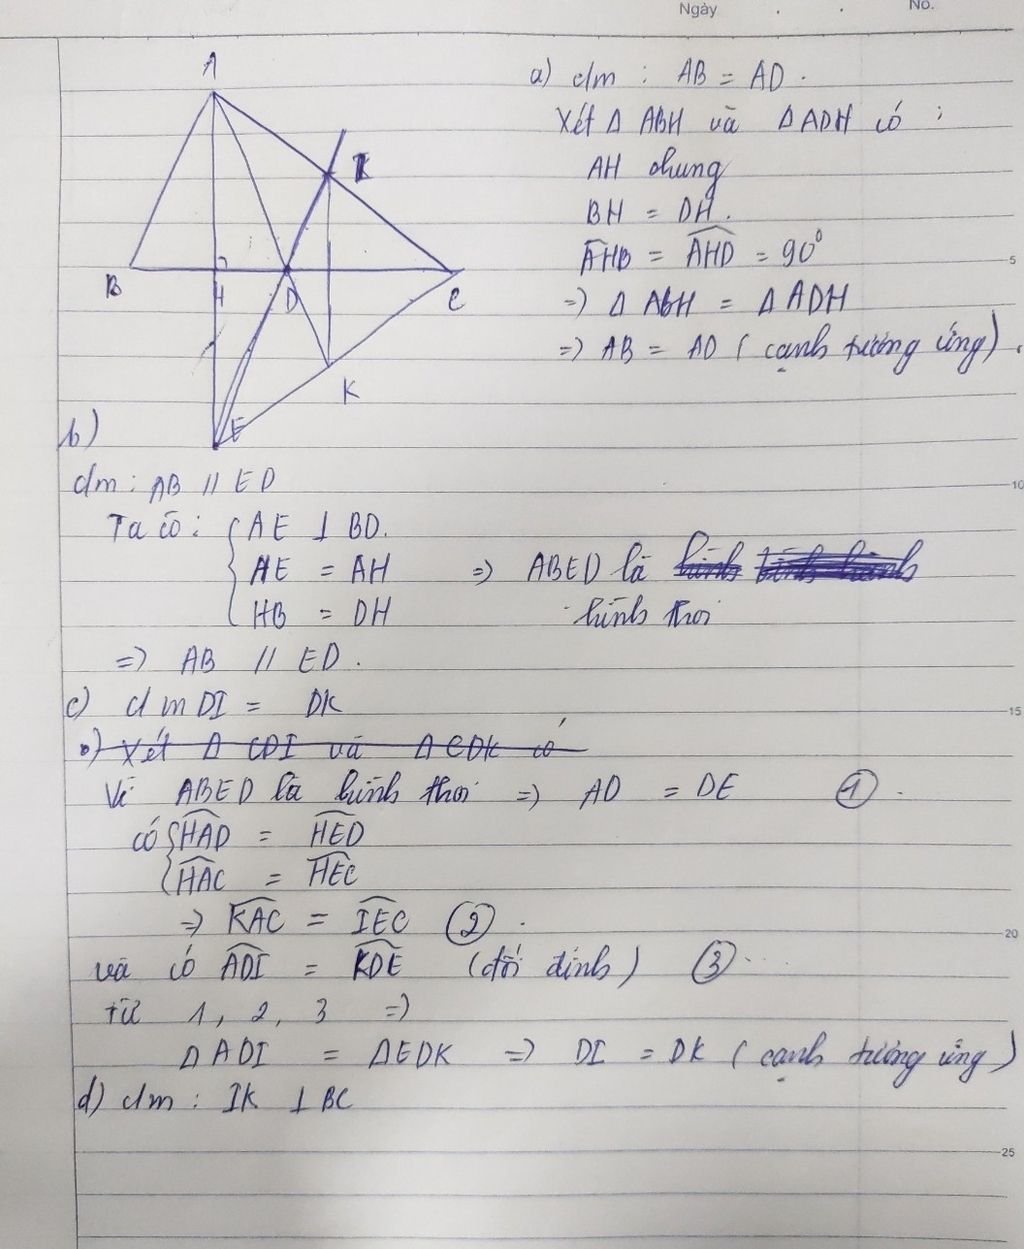 Ngày
No.
A
I
B
H
D
C
K
E
a) cm : AB = AD .
Xét Δ ABH và Δ ADH có :
AH chung
BH = DH .
AHB = AHD = 90°
=> Δ ABH = Δ ADH
=> AB = AD ( cạnh tương ứng)
b)
cm : AB // ED
Ta có : { AE ⊥ BD.
HE = AH => ABED là hình bình hành
HB = DH hình thoi
=> AB // ED .
c) cm DI = DK
Xét Δ CDI và Δ CDK có
Vì ABED là hình thoi => AD = DE ①.
có { HAD = HED
HAC = HEC
=> KAC = IEC ② .
và có ADI = KDE (đối đỉnh) ③
Từ 1, 2, 3 =>
Δ ADI = Δ EDK => DI = DK ( cạnh tương ứng)
d) cm : IK ⊥ BC
5
10
15
20
25